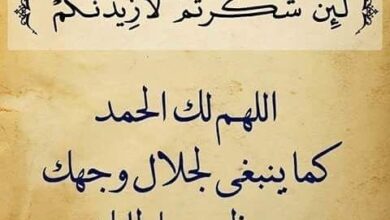 لَئِن شَكَرْتُمْ لَأَزِيدَنَّكُمْ
اللهم لك الحمد
كما ينبغى لجلال وجهك